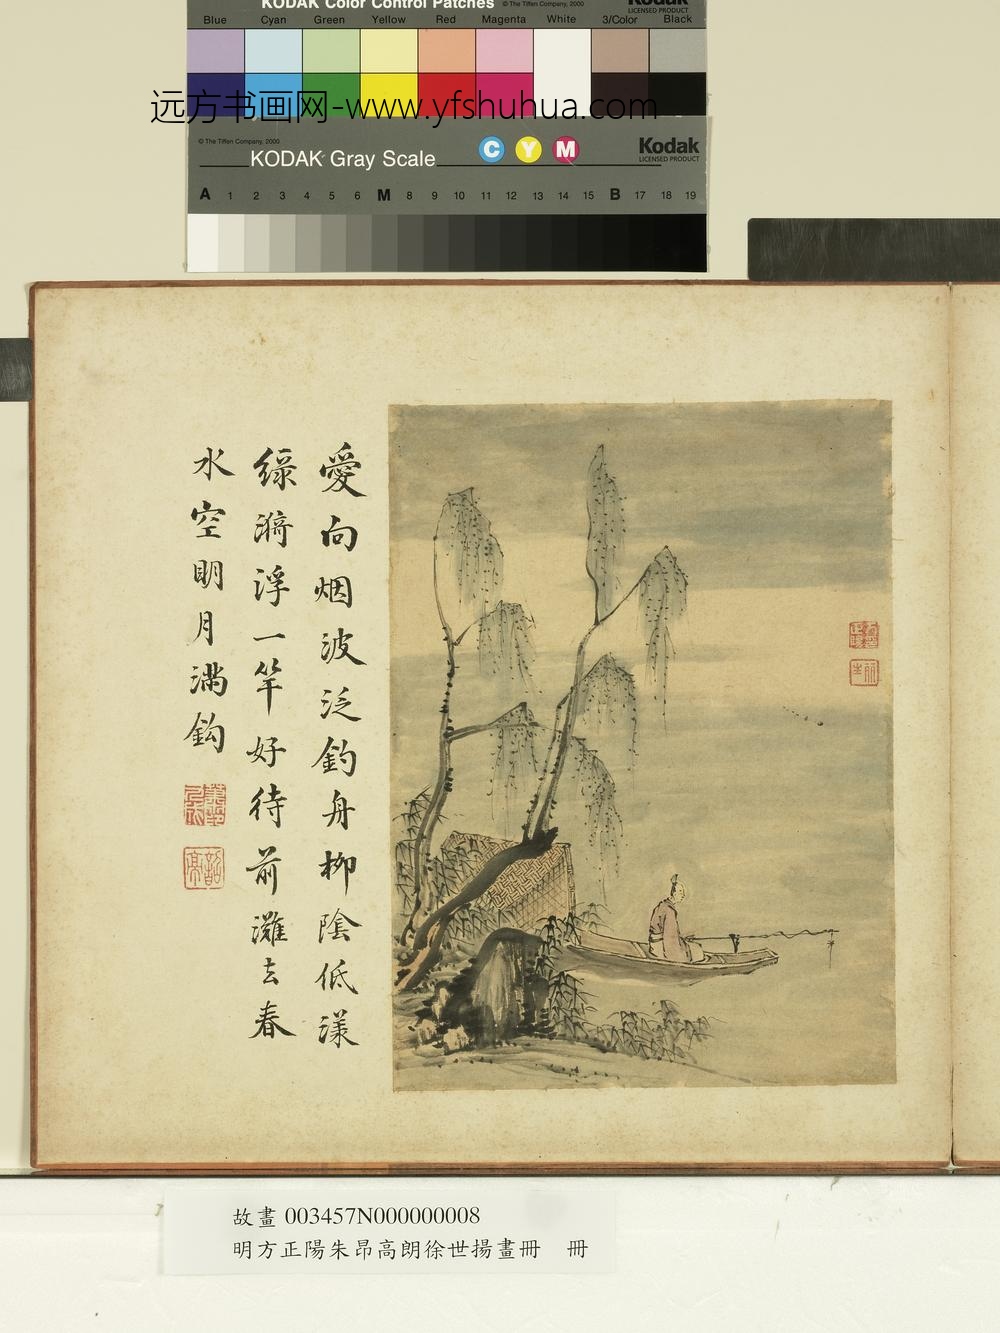 KODAK Color Control Patches © The Tiffen Company, 2000 Kodak
LICENSED PRODUCT
Blue Cyan Green Yellow Red Magenta White 3/Color Black
远方书画网-www.yfshuhua.com
© The Tiffen Company, 2000
KODAK Gray Scale C Y M Kodak
LICENSED PRODUCT
A 1 2 3 4 5 6 M 8 9 10 11 12 13 14 15 B 17 18 19
愛向烟波泛釣舟柳陰低漾
綠漪浮一竿好待前灘去春
水空明月滿鈎
故畫 003457N000000008
明方正陽朱昂高朗徐世揚畫冊 冊